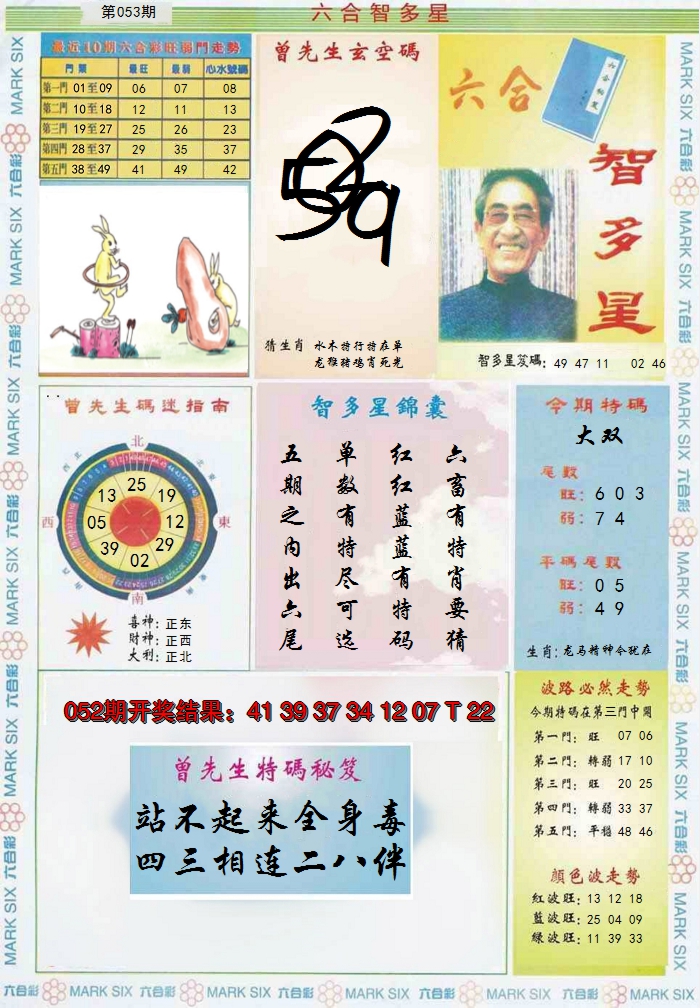 第053期
六合智多星
最近10期六合彩旺弱門走勢
門類 最旺 最弱 心水號碼
第一門 01至09 06 07 08
第二門 10至18 12 11 13
第三門 19至27 25 26 23
第四門 28至37 29 35 37
第五門 38至49 41 49 42
曾先生玄空碼
猜生肖 水木特行特在單
龙猴豬鸡肖死光
六合
智多星
智多星笈碼: 49 47 11 02 46
曾先生碼迷指南
北
西
東
南
25
19
12
29
02
39
05
13
喜神: 正东
財神: 正西
大利: 正北
智多星錦囊
六畜有特肖要猜
红红蓝蓝有特码
单数有特尽可选
五期之内出六尾
今期特碼
大双
尾數
旺: 6 0 3
弱: 7 4
平碼尾數
旺: 0 5
弱: 4 9
生肖: 龙马精神今犹在
052期开奖结果: 41 39 37 34 12 07 T 22
曾先生特碼秘笈
站不起来全身毒
四三相连二八伴
波路必然走勢
今期特碼在第三門中開
第一門: 旺 07 06
第二門: 轉弱 17 10
第三門: 旺 20 25
第四門: 轉弱 33 37
第五門: 平穩 48 46
顔色波走勢
紅波旺: 13 12 18
藍波旺: 25 04 09
綠波旺: 11 39 33
六合彩 MARK SIX 六合彩 MARK SIX 六合彩 MARK SIX 六合彩 MARK SIX 六合彩 MARK SIX